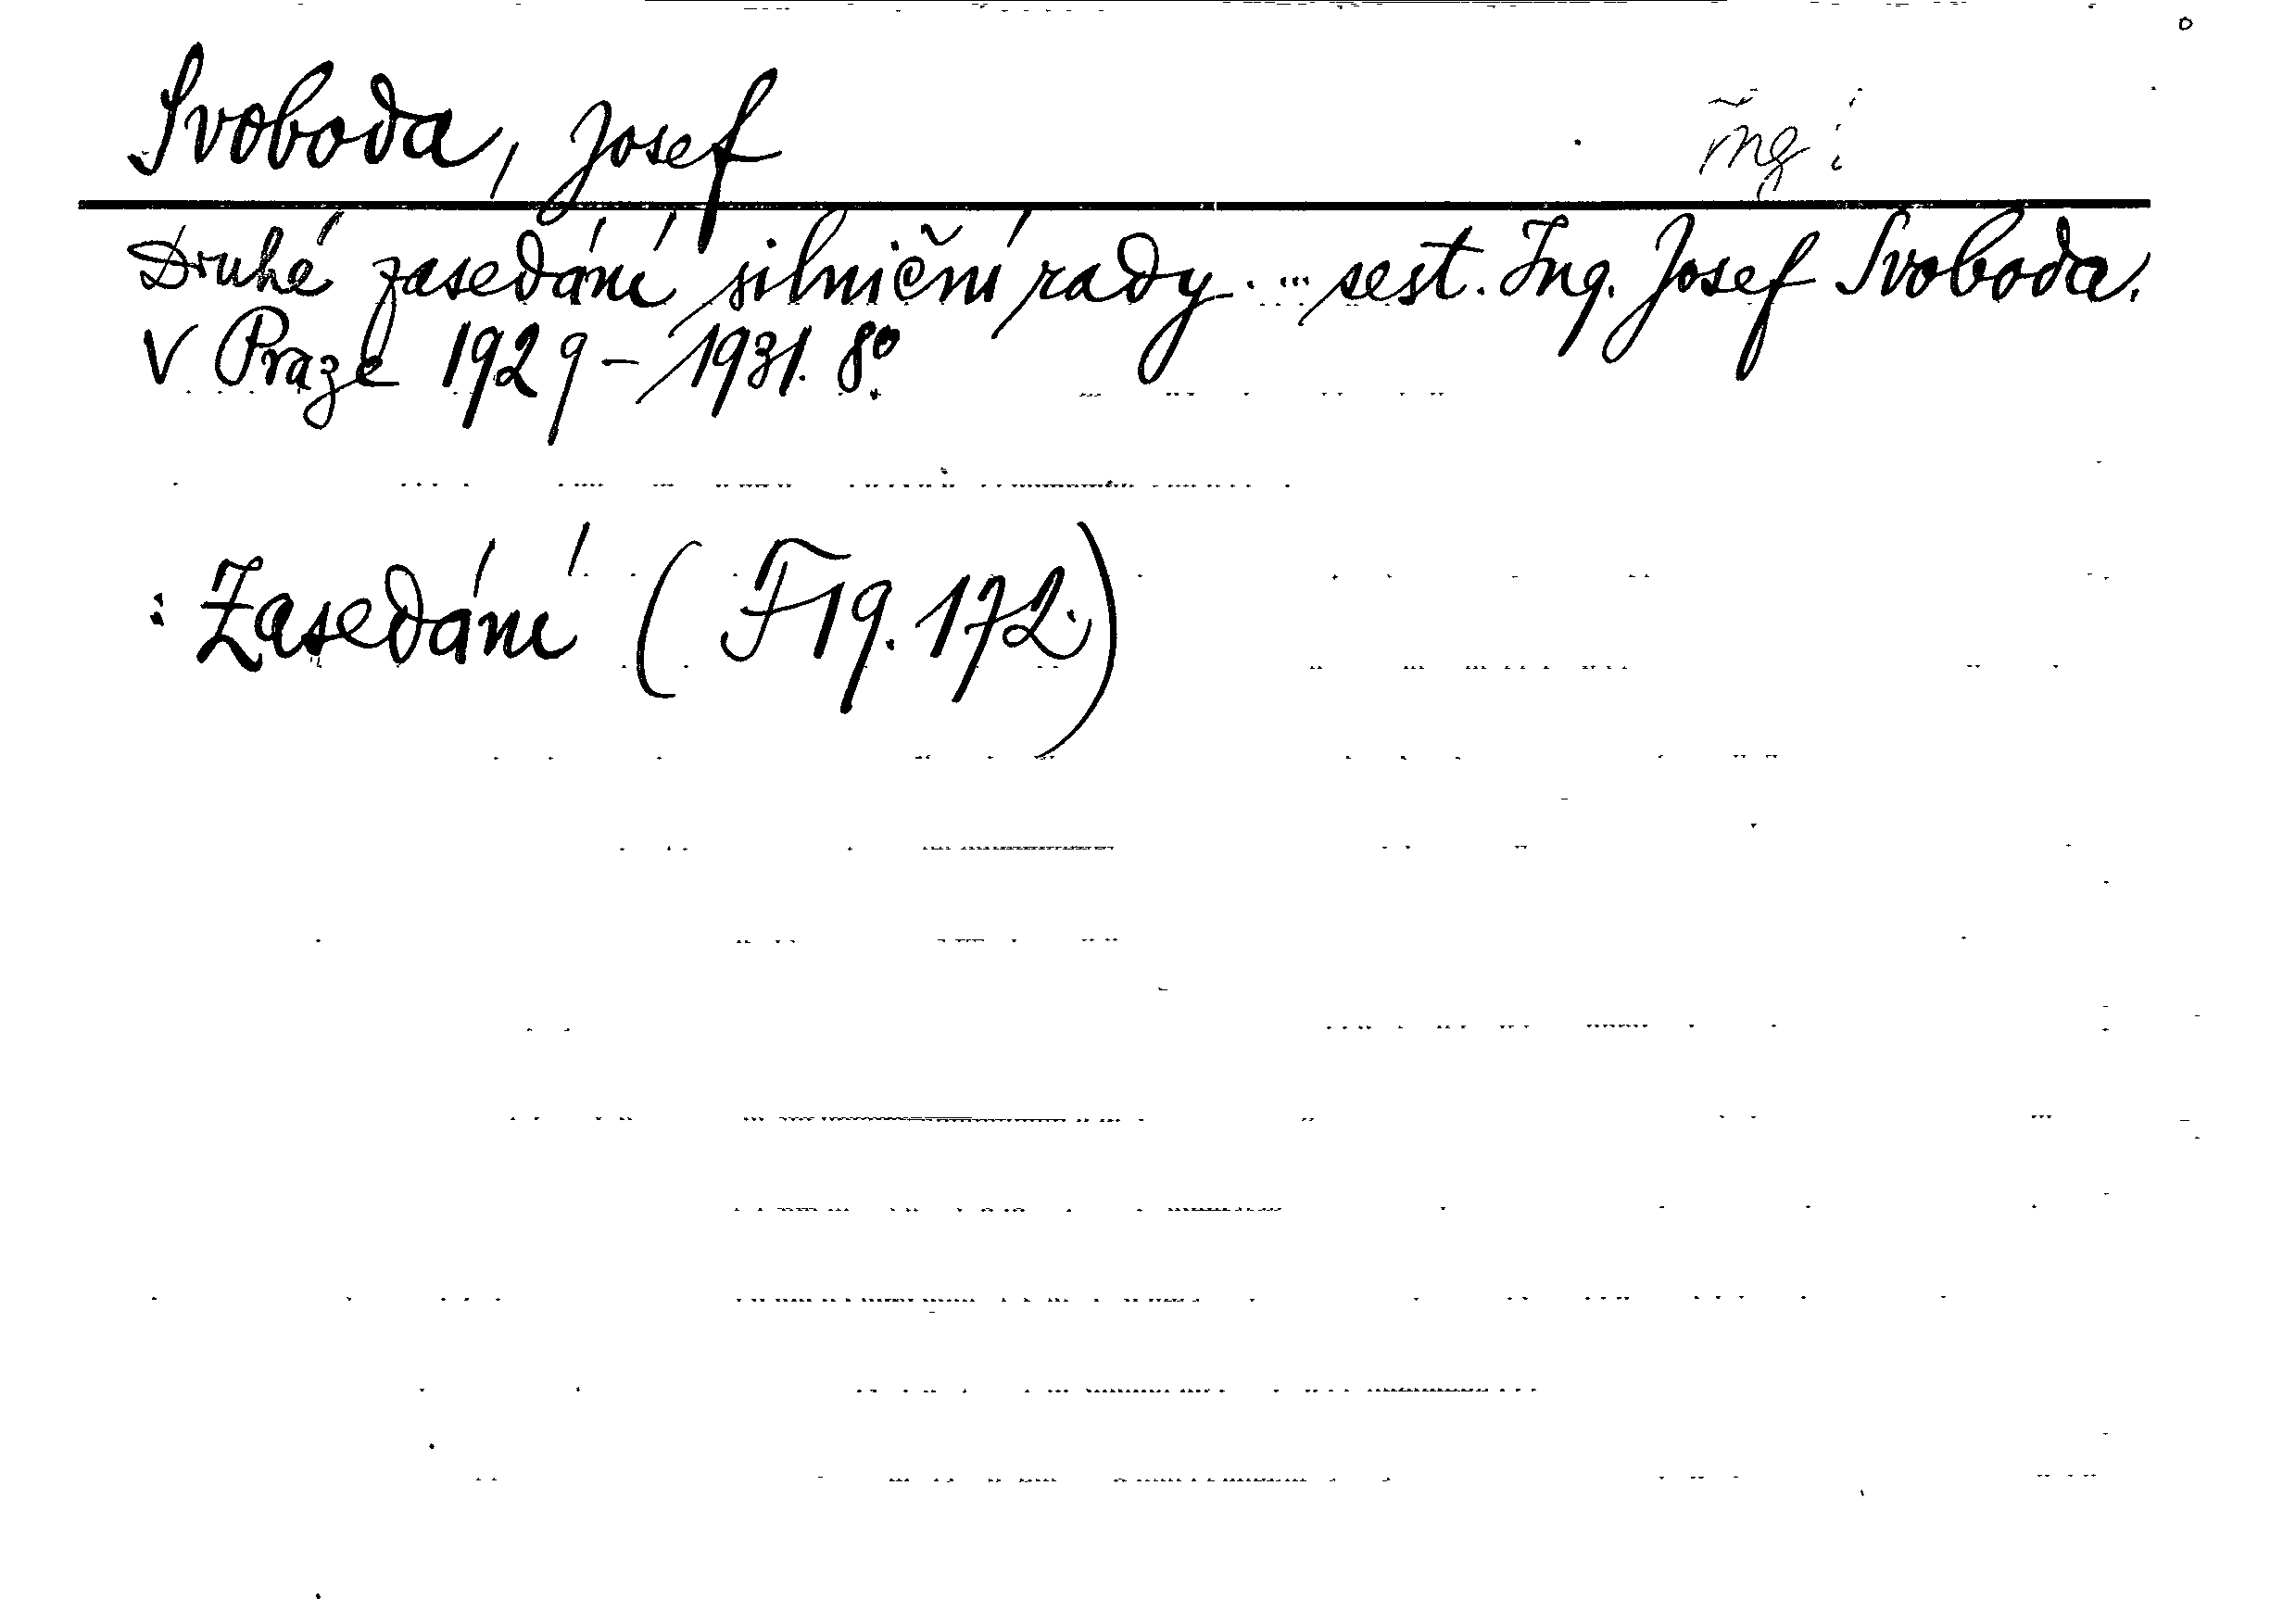 Svoboda, Josef
Druhé zasedání silniční rady. ... sest. Ing. Josef Svoboda.
V Praze 1929-1931. 8°.
: Zasedání (F19.172.)